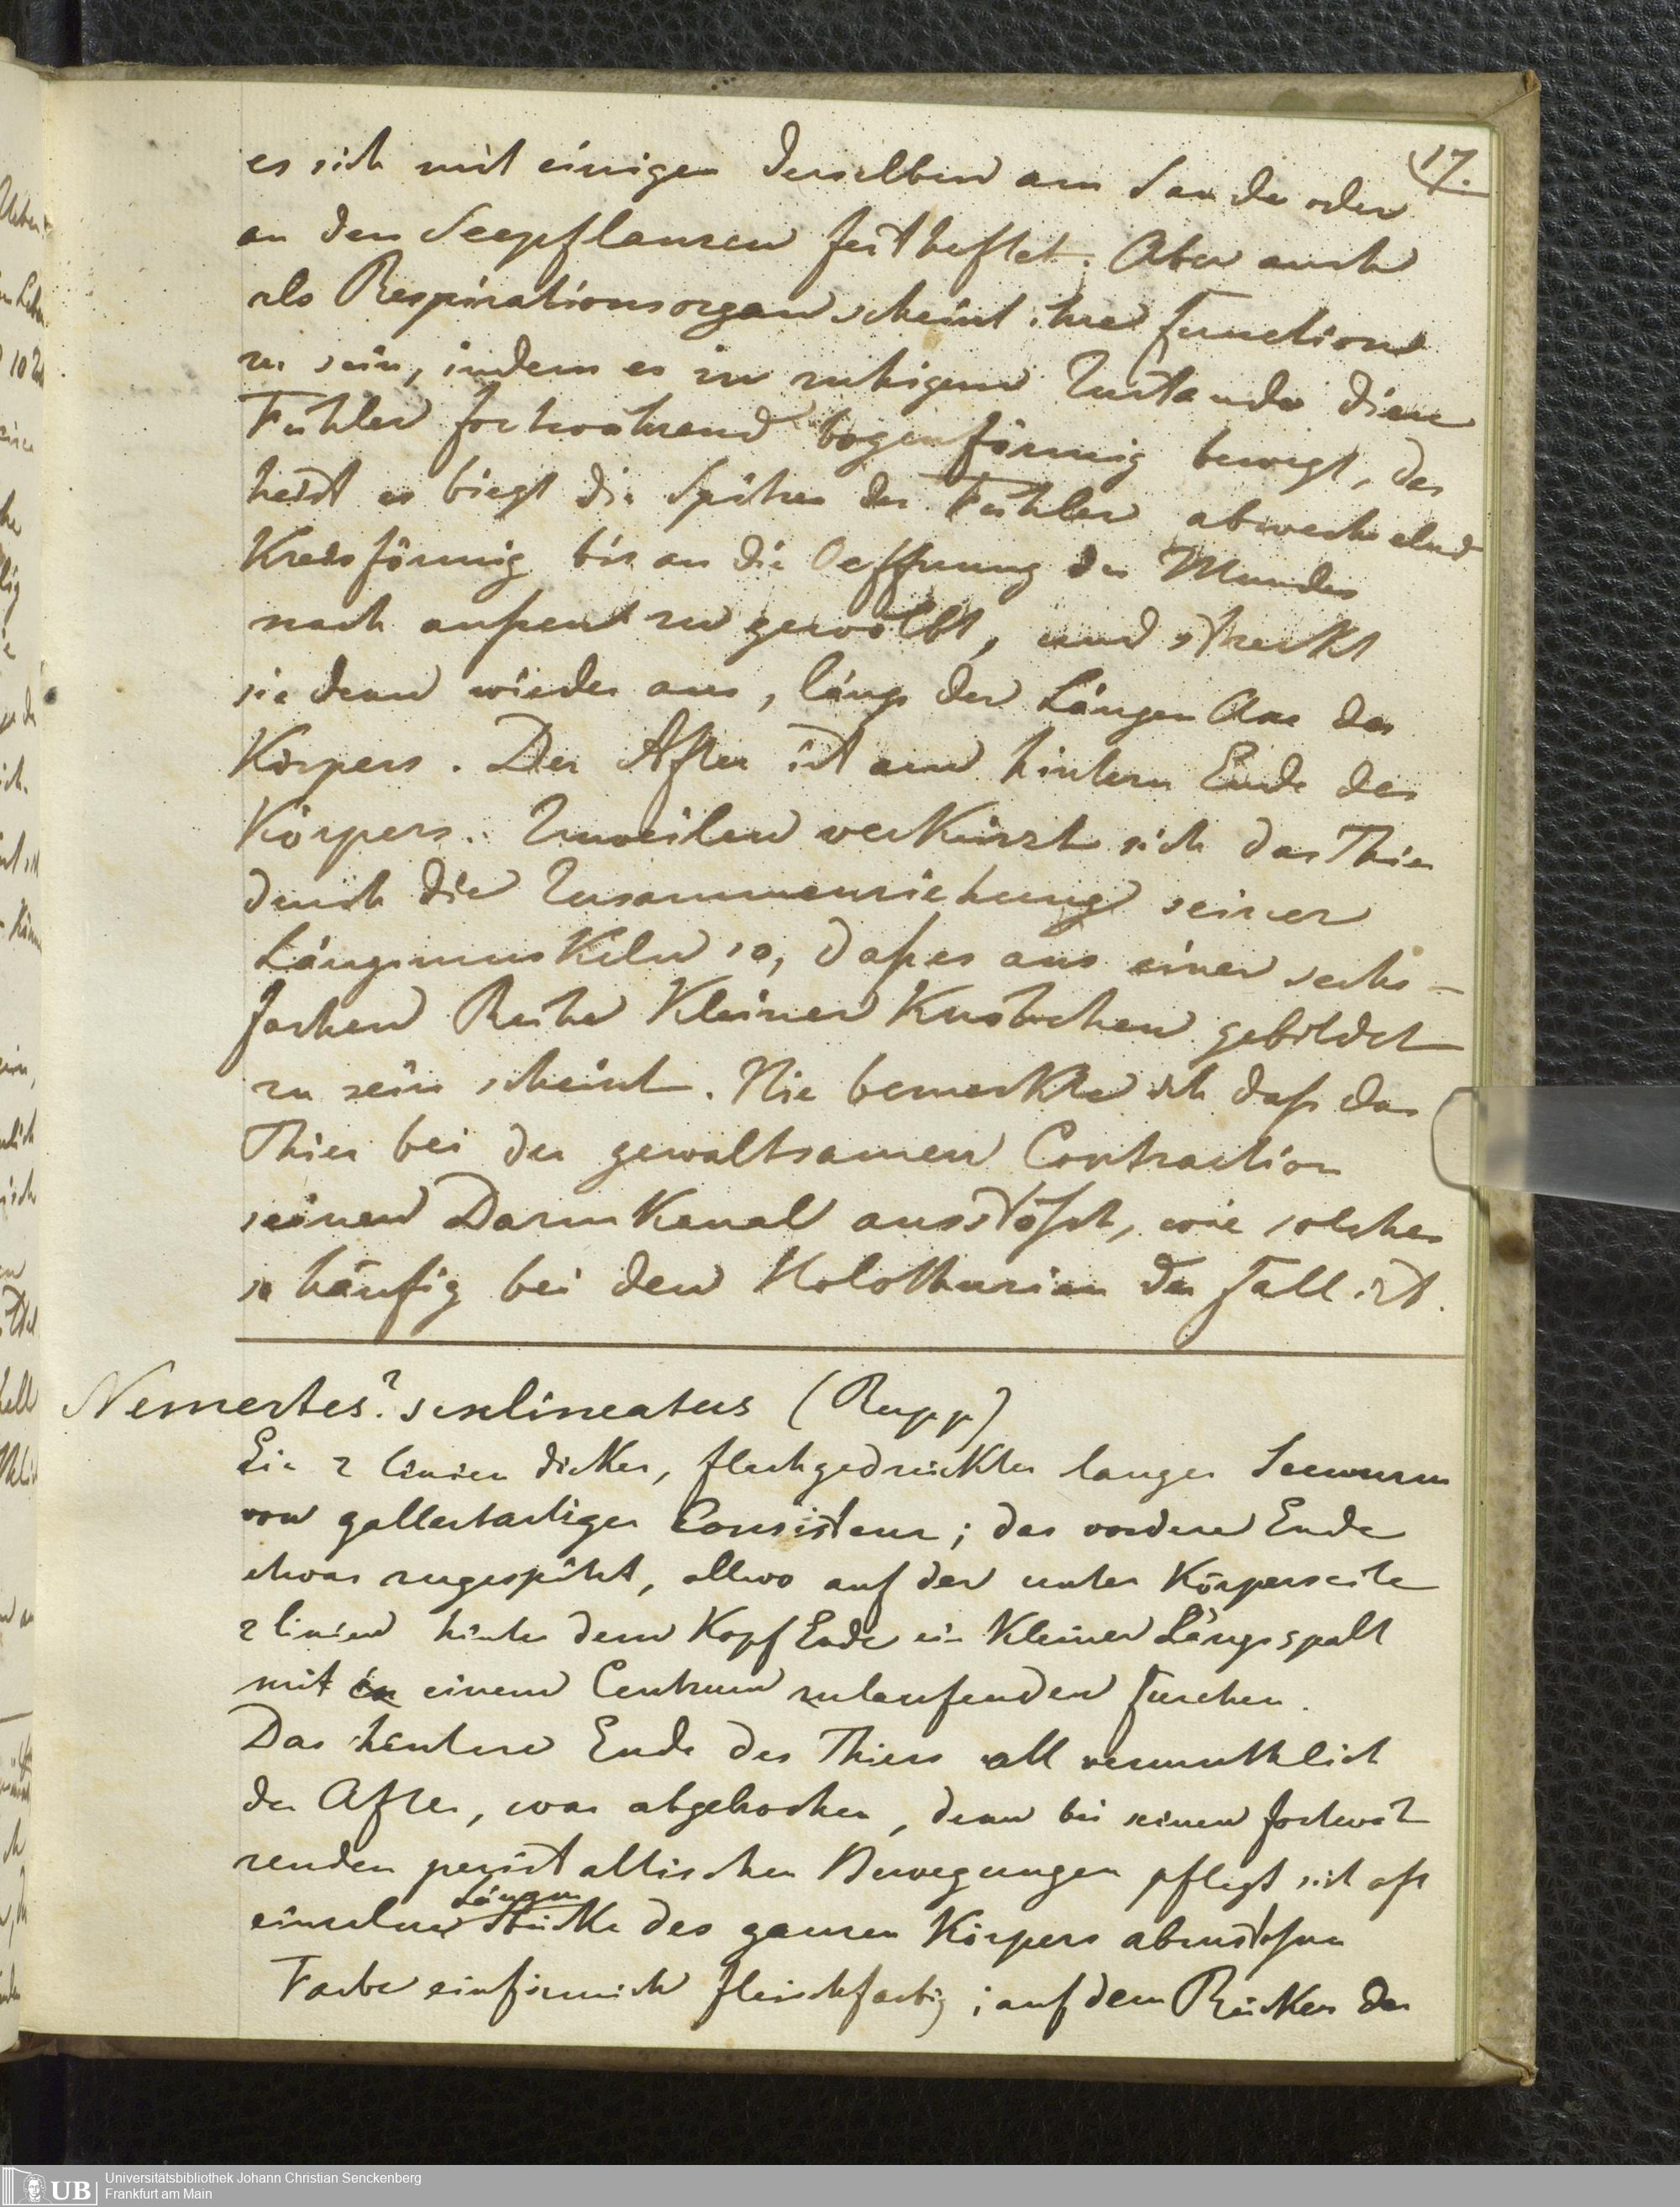 17.
es sich mit einigen derselben am Sande oder
an den Seepflanzen festheftet. Aber auch
als Respirationsorgan scheint ihre Function
zu sein, indem es in ruhigem Zustande diese
Fühler fortwährend bogenförmig bewegt, das
heist es biegt die Spitzen der Fühler abwechselnd
Kreisförmig bis an die Oeffnung des Mundes
nach außen zu gewölbt, und streckt
sie dann wieder aus, längs der Längen Axe des
Körpers. Der After ist am hintern Ende des
Körpers. Zuweilen verkürzt sich das Thier
durch die Zusammenziehung seiner
Längsmuskeln so, daß es aus einer sechs-
fachen Reihe Kleiner Knötchen gebildet
zu sein scheint. Nie bemerkte ich daß das
Thier bei der gewaltsamen Contraction
seinen Darm Kanal ausstößt, wie solches
so häufig bei den Holothurien der Fall ist.
Nemertes? sexlineatus (Rupp)
Ein 2 linien dicker, flachgedrückter langer Seewurm
von gallertartiger Consistenz; das vordere Ende
etwas zugespitzt, allwo auf der unter Körperseite
2 linien hinter dem Kopf Ende ein Kleiner Längsspalt
mit in einem Centrum zulaufenden Furchen.
Das hintere Ende des Thiers all vermuthlich
der After, war abgebrochen, denn bei seinen fortwäh
renden peristaltischen Bewegungen pflegt sich oft
Längen
einzelne Stücke des ganzen Körpers abzustoßen
Farbe einförmich fleischfarbig; auf dem Rücken des
Universitätsbibliothek Johann Christian Senckenberg
Frankfurt am Main
UB